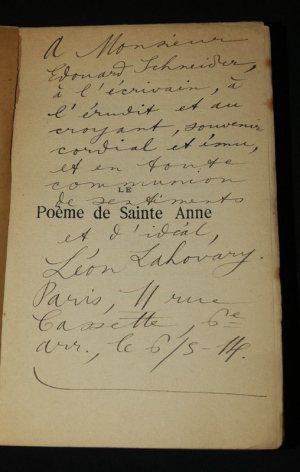 A Monsieur
Edouard Schneider,
à l'écrivain, à
l'érudit et au
croyant, souvenir
cordial et ému,
et en toute
communion
LE
de sentiments
Poème de Sainte Anne
et d'idéal,
Léon Lahovary.
Paris, 11 rue
Cassette, 6e
arr., le 6/5-14.